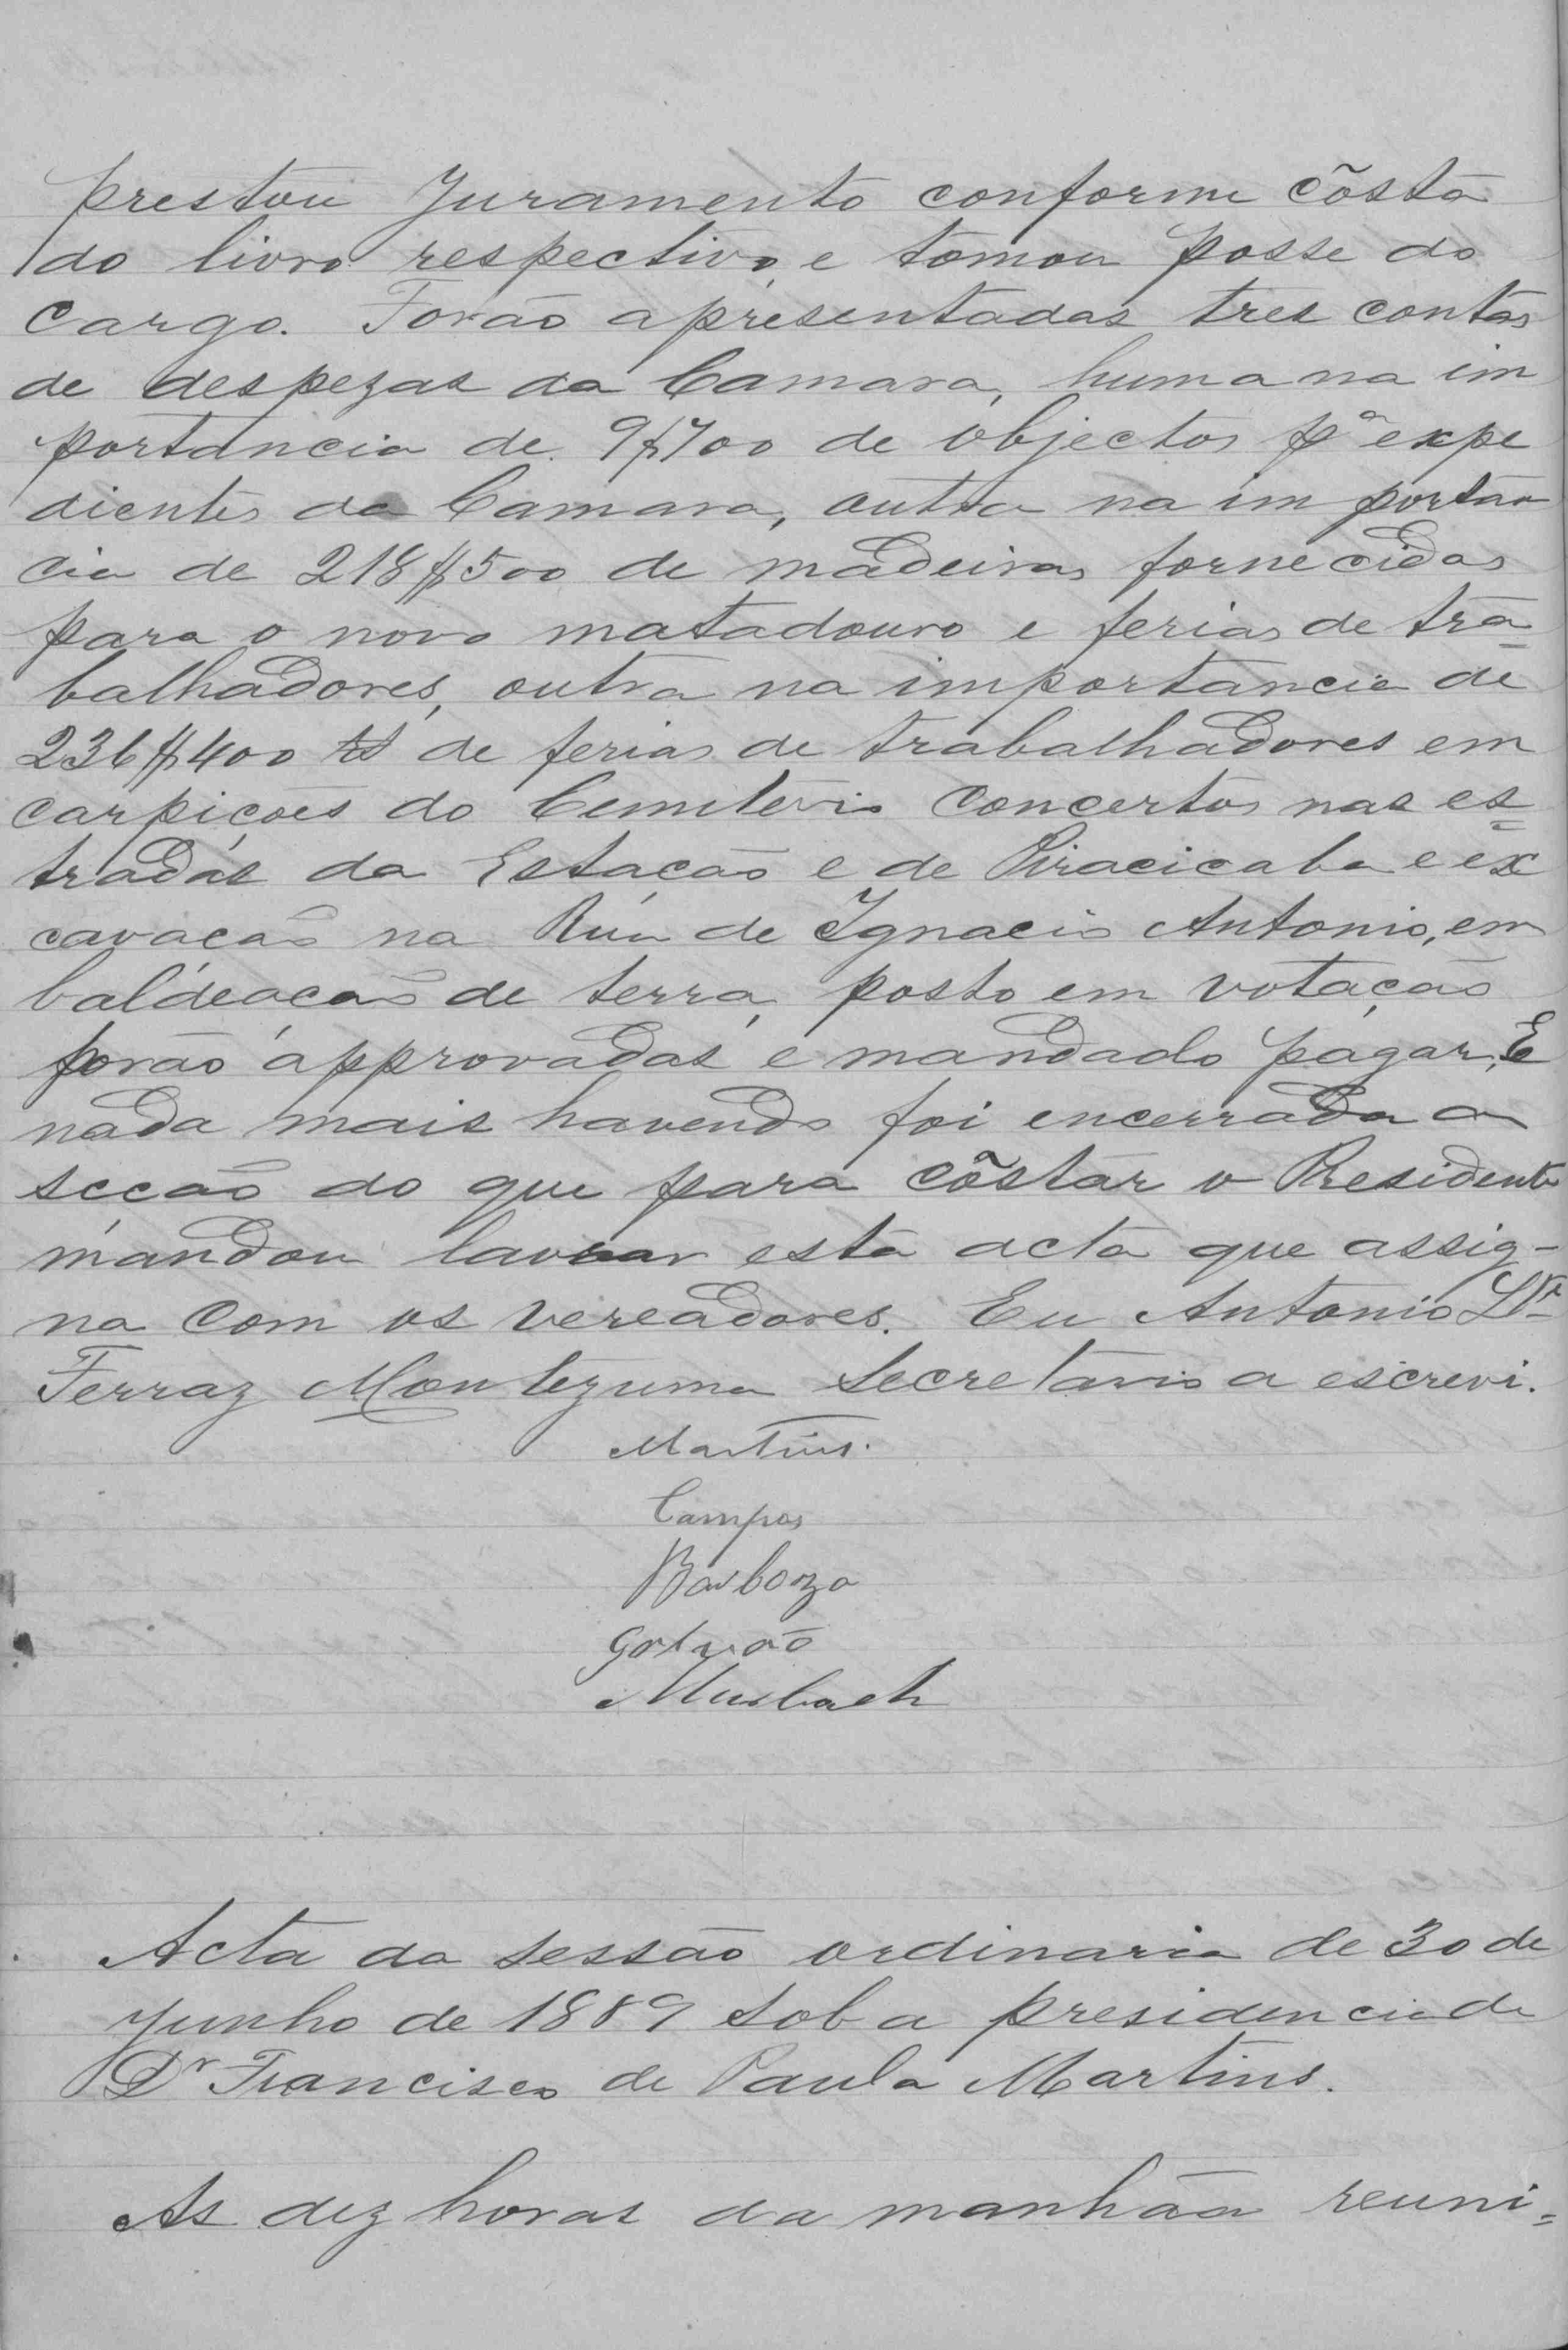 prestou Juramento conforme cõsta
do livro respectivo, e tomou posse do
cargo. Forão apresentadas tres contas
de despezas da Camara, huma na im
portancia de 9$700 de objectos pª expe
dientes da Camara, outra na im portan
cia de 218$500 de madeiras fornecidas
para o novo matadouro e ferias de tra=
balhadores, outra na importancia de
236$400 rs de ferias de trabalhadores em
carpições do Cemiterio concertos nas es=
tradas da Estação e de Piracicaba e ex
cavação na Rua de Ignacio Antonio, em
baldeação de terra, posto em votação
forão approvadas e mandado pagar, E
nada mais havendo foi encerrada a
secção do que para cõstar o Presidente
mandou lavrar esta acta que assig-
na com os vereadores. Eu Antonio
Ferraz Montezuma Secretario a escrevi.
Martins.
Campos
Barboza
Galvão
Murbach
Acta da sessão ordinaria de 30 de
Junho de 1889 sob a presidencia de
Dr Francisco de Paula Martins.
As dez horas da manhãa reuni=